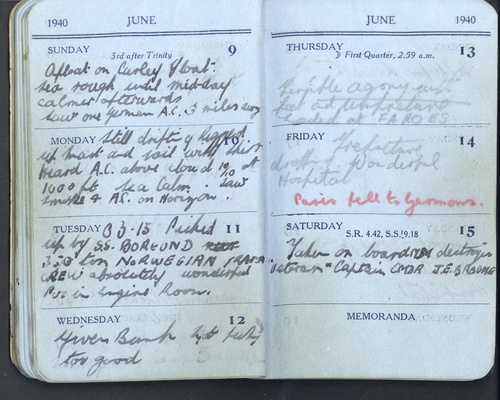 1940 JUNE
SUNDAY 3rd after Trinity 9
Afloat on Curley Float
sea rough until midday
calmer afterwards
Saw one German A.C. 3 miles away
MONDAY 10
Still drifting Rigged
up mast and sail with shirt
Heard A.C. above cloud 10/10 at
1000 ft Sea Calm. Saw
smoke & A.C. on Horizon.
TUESDAY 11
03.15 Picked
up by S.S. BORGUND
350 ton NORWEGIAN
CREW absolutely wonderful
Put in Engine Room.
WEDNESDAY 12
Given Bunk not feeling
too good
JUNE 1940
THURSDAY 13
☽ First Quarter, 2.59 a.m.
Terrible agony
feet
Landed at FAROES
FRIDAY 14
Wonderful
Hospital
Paris fell to Germans.
SATURDAY S.R. 4.42, S.S. 9.18 15
Taken on board destroyer
"Veteran" Captain CMDR J.E. BROOME
MEMORANDA